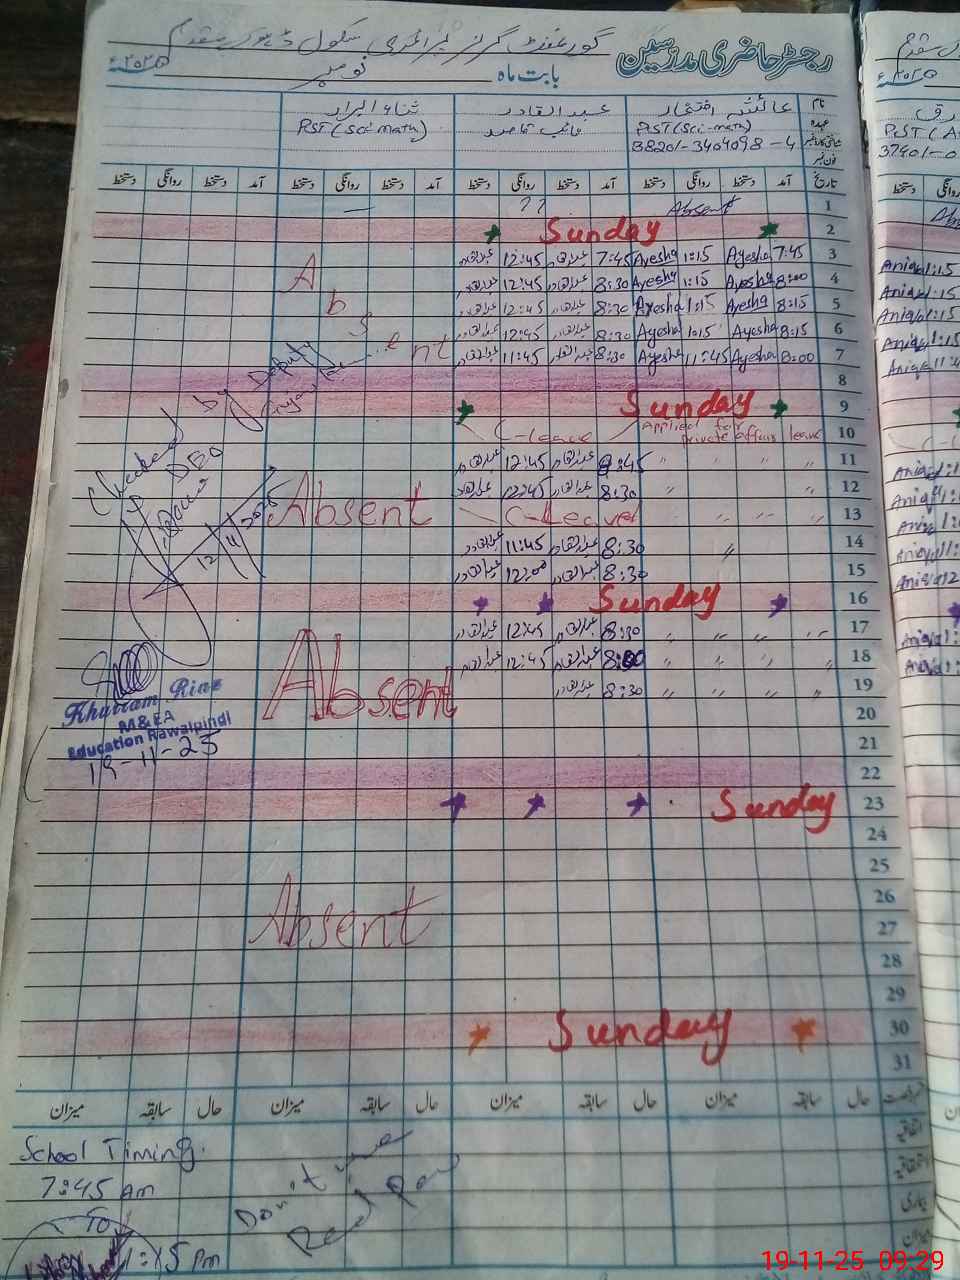 رجسٹر حاضری مدرسین
گورنمنٹ گرلز پرائمری سکول ڈہوک مقدم
بابت ماہ نومبر ۲۰۲۵ء
نام عائشہ افتخار عبدالقادر ثناء ابرار
عہدہ PST (Sci-math) نائب قاصد PST (Sci math)
شناختی کارڈ نمبر 38201-3404098-4
فون نمبر
تاریخ آمد دستخط روانگی دستخط آمد دستخط روانگی دستخط آمد دستخط روانگی دستخط آمد دستخط روانگی دستخط
1 Absent ?? —
2 Sunday
3 7:45 Ayesha 1:15 Ayesha 7:45 عبدالقادر 12:45 عبدالقادر
4 8:00 Ayesha 1:15 Ayesha 8:30 عبدالقادر 12:45 عبدالقادر
5 8:15 Ayesha 1:15 Ayesha 8:30 عبدالقادر 12:45 عبدالقادر
6 8:15 Ayesha 1:15 Ayesha 8:30 عبدالقادر 12:45 عبدالقادر
7 8:00 Ayesha 11:45 Ayesha 8:30 عبدالقادر 11:45 عبدالقادر
Absent
8
9 Sunday
10 Applied for private affairs leave C-leave
11 " " " " 8:45 عبدالقادر 12:45 عبدالقادر
12 " " " " 8:30 عبدالقادر 12:45 عبدالقادر
13 " " " " C-Leave
Absent
14 " 8:30 عبدالقادر 11:45 عبدالقادر
15 8:30 عبدالقادر 12:00 عبدالقادر
16 Sunday
17 " " " " 8:30 عبدالقادر 12:45 عبدالقادر
18 " " " " 8:00 عبدالقادر 12:45 عبدالقادر
19 " " " " 8:30 عبدالقادر
Absent
20
21
22
23 Sunday
24
25
26
27
Absent
28
29
30 Sunday
31
Checked by Deputy
DEO
12/11/2025
Khurram Riaz
M&EA
Education Rawalpindi
19-11-25
حال سابقہ میزان حال سابقہ میزان حال سابقہ میزان حال سابقہ میزان
اتفاقیہ
استحقاقیہ
بیماری
میزان
School Timing.
7:45 Am
To
1:15 Pm
Don't use
Red Pen
19-11-25 09:29